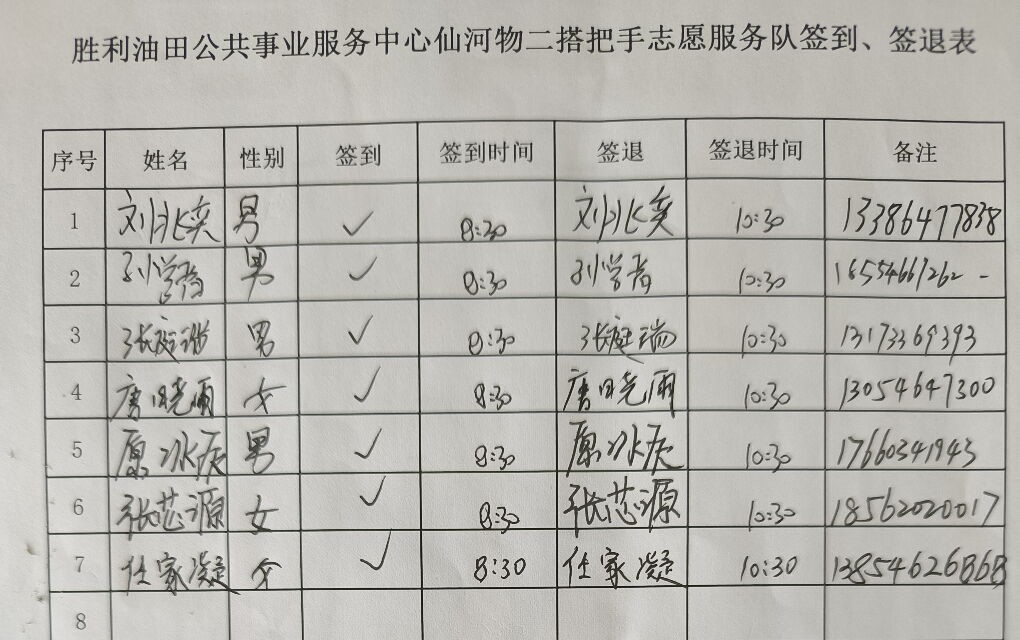 胜利油田公共事业服务中心仙河物二搭把手志愿服务队签到、签退表
序号 姓名 性别 签到 签到时间 签退 签退时间 备注
1 刘兆奕 男 ✓ 8:30 刘兆奕 10:30 13386477838
2 孙学 男 ✓ 8:30 孙学 10:30 16554669262
3 张庭瑞 男 ✓ 8:30 张庭瑞 10:30 13173369393
4 唐晓雨 女 ✓ 8:30 唐晓雨 10:30 13054647300
5 原冰 男 ✓ 8:30 原冰 10:30 17660341943
6 张芯源 女 ✓ 8:30 张芯源 10:30 18562020017
7 任家凝 女 ✓ 8:30 任家凝 10:30 13854626868
8